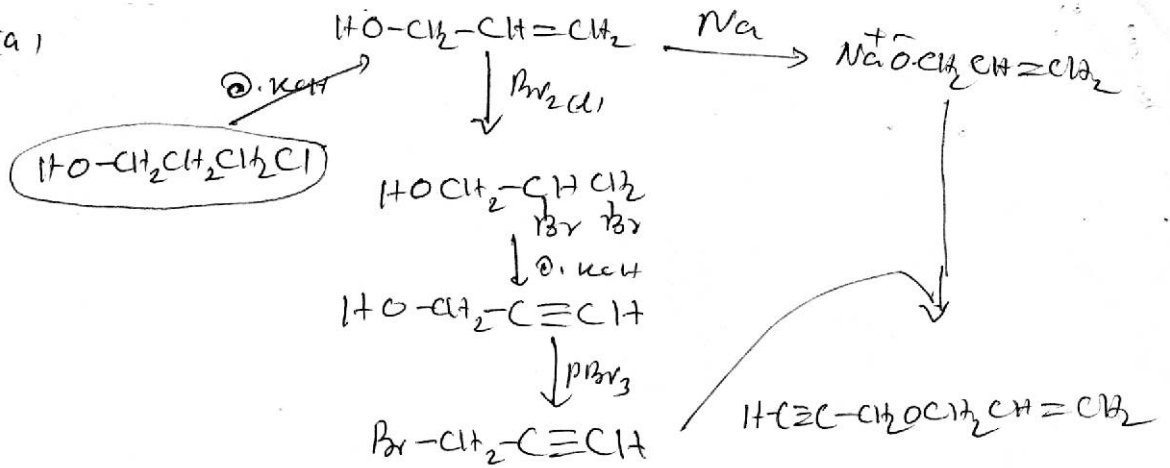 a)
HO-CH₂-CH=CH₂
Na
Na⁺O⁻CH₂CH=CH₂
Br₂(l)
HO-CH₂CH₂CH₂Cl
HOCH₂-CHCH₂
Br Br
HO-CH₂-C≡CH
PBr₃
Br-CH₂-C≡CH
H-C≡C-CH₂OCH₂CH=CH₂